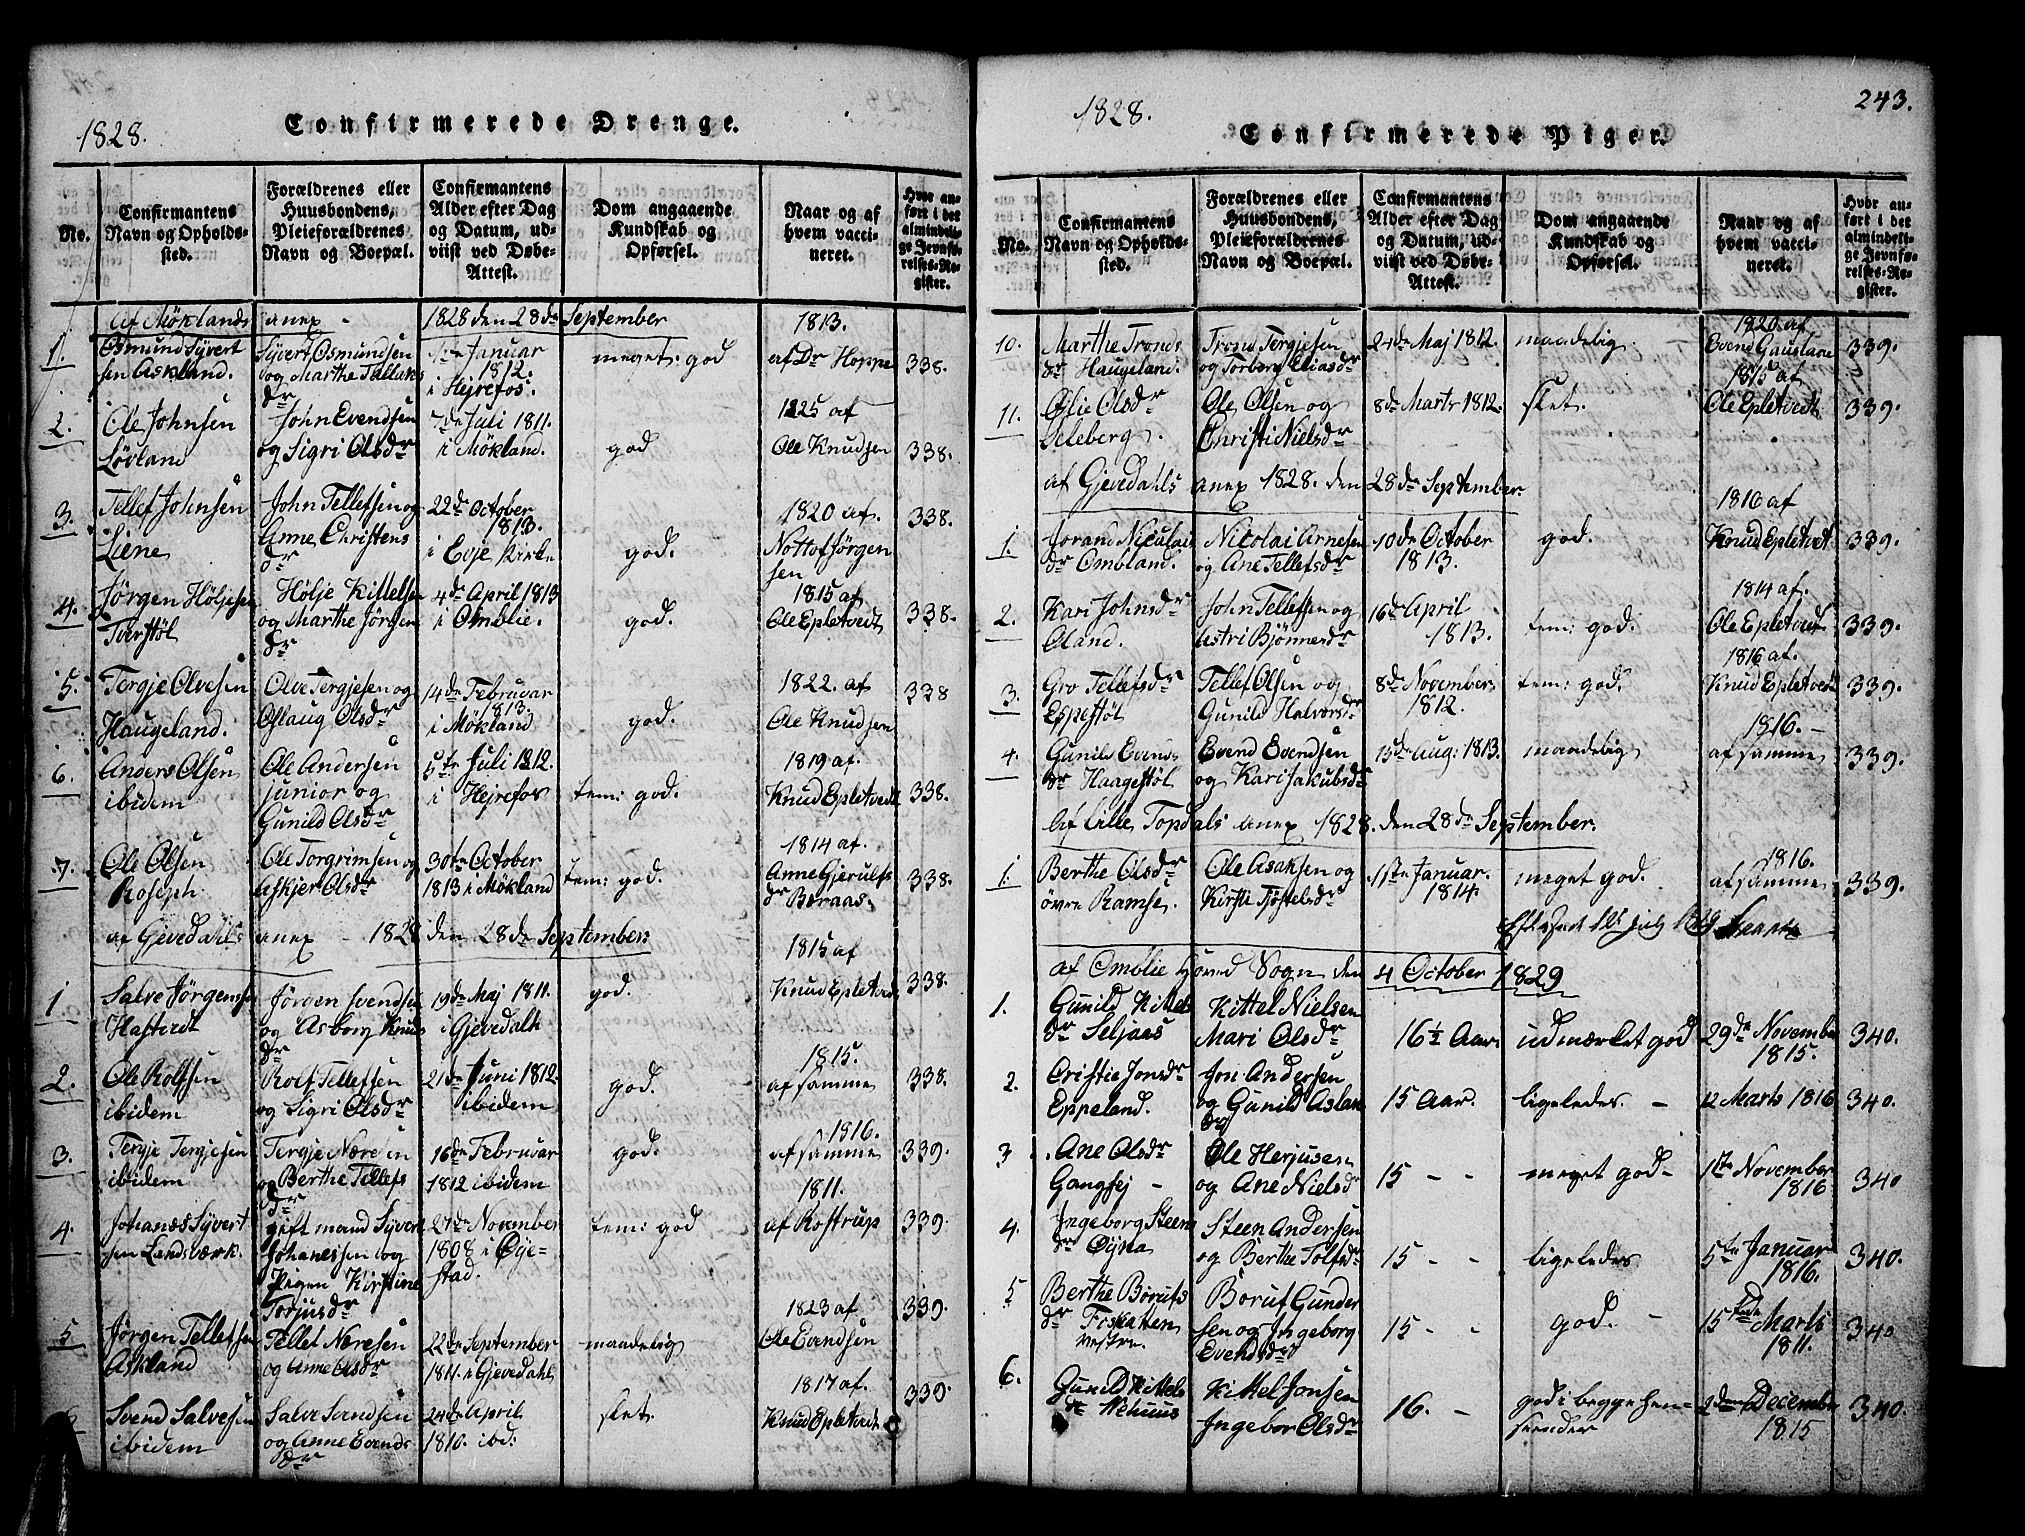 1828.
Confirmerede Drenge.
No.
Confirmantens
Navn og Opholds-
sted.
Forældrenes eller
Huusbondens,
Pleieforældrenes
Navn og Boepæl.
Confirmantens
Alder efter Dag
og Datum, ud-
viist ved Døbe-
Attest.
Dom angaaende
Kundskab og
Opførsel.
Naar og af
hvem vacci-
neret.
Hvor an-
ført i det
almindeli-
ge Jevnfø-
relses-Re-
gister.
Af Möklands anex - 1828 den 28de September
1.
Osmund Syvert
sen Askland.
Syvert Osmundsen
og Marthe Tallaks
dr
1ste Januar
1812.
i Hejrefos.
meget: god
1813.
af Dr Hoppe
338.
2.
Ole Johnsen
Lödland
John Evendsen
og Sigri Olsdr
7de Juli 1811.
i Mökland.
god
1825 af
Ole Knudsen
338.
3.
Tellef Johnsen
Liene
John Tellefsen og
Anne Christens
dr
22de October
1813.
i Evje Kirke
god.
1820 af.
Nottof Jörgen
sen
338.
4.
Jörgen Höljesen
Tverstöl
Hölje Kittelsen
og Marthe Jörgen
dr
4de April 1813
i Omblie.
god.
1815 af
Ole Epletvedt
338.
5.
Tergje Olvesen
Haugeland.
Olve Tergjesen og
Oslaug Olsdr
14de Februar
1813.
i Mökland
god.
1822. af
Ole Knudsen
338
6.
Anders Olsen
ibidem
Ole Andersen
junior og
Gunild Olsdr
5te Juli 1812.
i Hejrefos
tem: god.
1819 af.
Knud Epletvedt
338.
7.
Ole Olsen
Roseph.
Ole Torgrimsen og
Askjer Olsdr
30te October
1813 i Mökland
tem: god.
1814 af.
Anne Gjerulfs
dr Beraas.
338.
af Gjevedahls anex - 1828 den 28de September:
1
Salve Jörgensen
Hastvedt
Jörgen Svendsen
og Asborg Knuds
dr
19de Maj 1811.
i Gjevedahl
god.
1815 af
Knud Epletvedt
338.
2.
Ole Rolfsen
ibidem
Rolf Tellefsen
og Sigri Olsdr
21de Juni 1812.
ibidem
god.
1815.
af samme
338.
3.
Tergje Tergjesen
ibidem
Tergje Næresen
og Berthe Tellefs
dr
16de Februar
1812 ibidem
god.
1816.
af samme
339.
4.
Johanes Syvert
sen Landsværk.
gift mand Syvert
Johanessen og
Pigen Kirstine
Torjusdr
27de November
1808 i Öye-
stad.
tem: god
1811.
af Rostrup
339.
5.
Jörgen Tellefsen
Askland
Tellef Næresen
og Anne Olsdr
22de September
1811. i Gjevedahl
maadelig
1823 af
Ole Evendsen
339.
Svend Salvesen
ibidem
Salve Svendsen
og Anne Evends
dr
24de April
1810. ibd:
slet.
1817 af.
Knud Epletvedt
339.
243.
1828.
Confirmerede Piger.
No.
Confirmantens
Navn og Opholds-
sted.
Forældrenes eller
Huusbondens,
Pleieforældrenes
Navn og Boepæl.
Confirmantens
Alder efter Dag
og Datum, ud-
viist ved Døbe-
Attest.
Dom angaaende
Kundskab og
Opførsel.
Naar og af
hvem vacci-
neret.
Hvor an-
ført i det
almindeli-
ge Jevnfø-
relses-Re-
gister.
10.
Marthe Tronds
dr Haugeland.
Trond Tergjesen
og Torborg Eliasdr
24de Maj 1812.
maadelig.
1820 af
Evend Gauslaae
339.
11.
Ölie Olsdr
Seleberg.
Ole Olsen og
Christi Nielsdr
8de Marts 1812.
slet.
1815 af
Ole Epletvedt
339.
af Gjevedahls anex 1828. den 28de September.
1.
Jorand Niculais
dr Ombland.
Nicolai Arnesen
og Ane Tellefsdr
10de October
1813.
god.
1816 af
Knud Epletvedt
339.
2.
Kari Johnsdr
Öland.
John Tellefsen og
Astri Bjönnersdr
16de April
1813.
tem: god.
1814 af.
Ole Epletvedt
339.
3.
Gro Tellefsdr
Espestöl
Tellef Olsen og
Gunild Halvorsdr
8de November.
1812.
tem: god.
1816 af.
Knud Epletvedt
339.
4.
Gunild Evends
dr Haagestöl
Evend Evendsen
og Kari Jakubsdr
15de Aug: 1813.
maadelig
1816. -
af samme
339.
Af Lille Topdals anex 1828. den 28de September.
1.
Berthe Olsdr
övre Ramse.
Ole Asaksen og
Kirsti Tjöstelsdr
11te Januar.
1814.
meget god.
1816.
af samme
339.
af Omblie Hoved Sogn den 4 October 1829
1.
Gunild Kittels
dr Seljaas
Kittel Nielsen
Mari Olsdr
16½ Aar.
udmærket god
29de November
1815.
340.
2.
Cristie Jonsdr
Eppeland.
Jon Andersen
og Gunild Aslaks
dr
15 Aar.
ligeledes. -
12 Marts 1816
340.
3
Ane Olsdr
Gangsej -
Ole Herjusen
og Ane Nielsdr
15 - -
meget god -
1te November
1816
340
4.
Ingeborg Steens
dr Öyna
Steen Andersen
og Berthe Tolfsdr
15 - -
ligeledes
5te Januar
1816.
340.
5
Berthe Börufs
dr Foskatten
vestre.
Böruf Gunder
sen og Ingeborg
Evendsdr
15 - -
god. -
15tende Marts
1811.
340
6.
Gunild Kittels
dr Nehuus
Kittel Jonsen
Ingebor Olsdr
16. -
god i begge hen-
seender
2den December
1815
340.